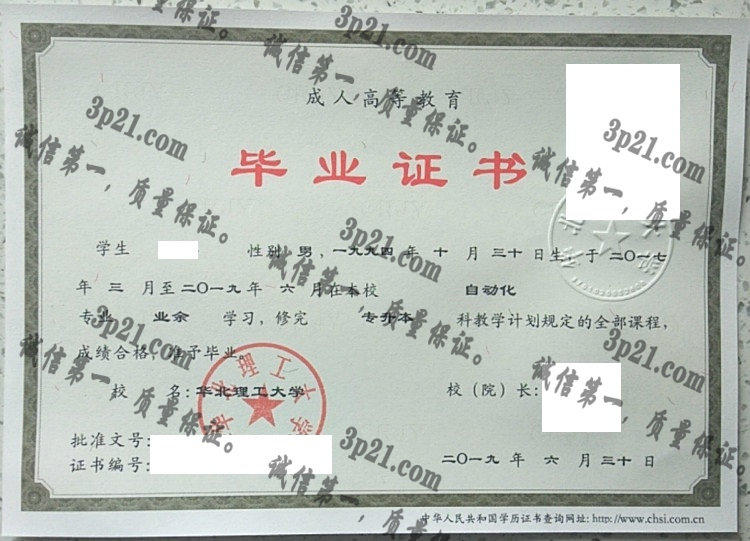 成人高等教育
毕业证书
学生 性别 男，一九九四 年 十 月 三十 日生，于 二〇一七
年 三 月至 二〇一九 年 六 月在本校 自动化
专业 业余 学习，修完 专升本 科教学计划规定的全部课程，
成绩合格，准予毕业。
校 名：华北理工大学 校（院）长：
批准文号：
证书编号：
二〇一九 年 六 月 三十 日
中华人民共和国学历证书查询网址: http://www.chsi.com.cn
华北理工大学
3p21.com
诚信第一，质量保证。
3p21.com
诚信第一，质量保证。
3p21.com
诚信第一，质量保证。
3p21.com
诚信第一，质量保证。
3p21.com
诚信第一，质量保证。
3p21.com
诚信第一，质量保证。
3p21.com
诚信第一，质量保证。
3p21.com
诚信第一，质量保证。